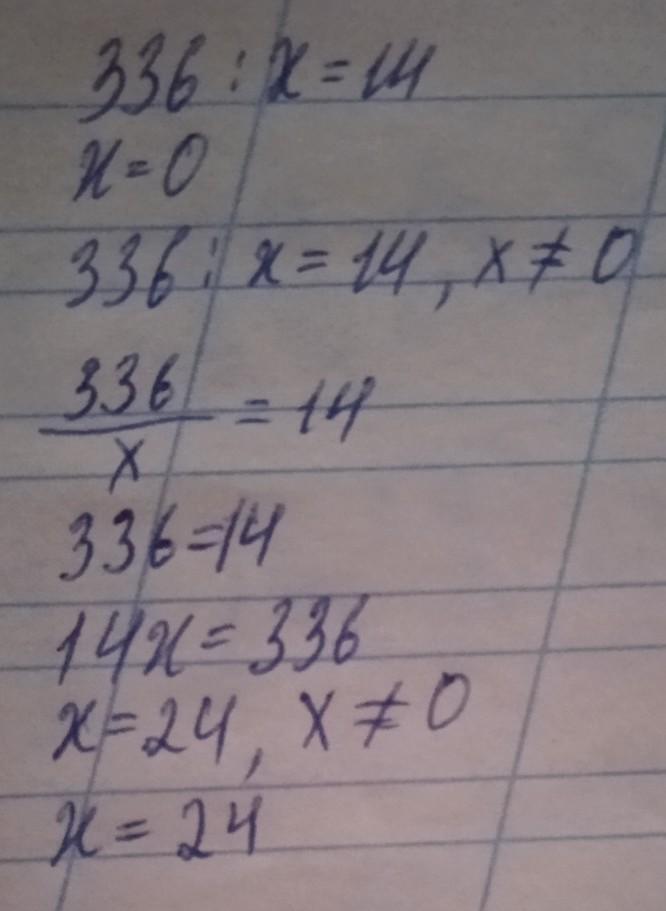 336 : x = 14
x = 0
336 : x = 14, x ≠ 0
336
── = 14
x
336 = 14
14x = 336
x = 24, x ≠ 0
x = 24